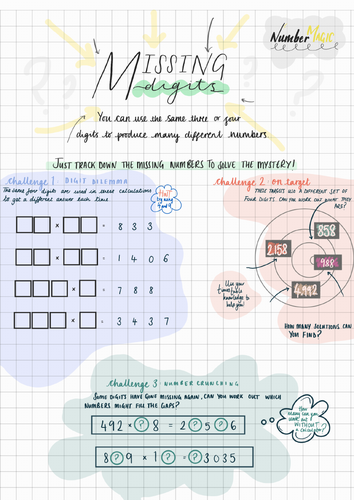 Number Magic
MISSING
digits
You can use the same three or four
digits to produce many different numbers.
JUST TRACK DOWN THE MISSING NUMBERS TO SOLVE THE MYSTERY!
Challenge 1 DIGIT DILEMMA
The same four digits are used in these calculations
to get a different answer each time
Hint!
try using
× = 8 3 3
× = 1 4 0 6
× = 7 8 8
× = 3 4 3 7
Challenge 2 On target
THESE TARGETS USE A DIFFERENT SET OF
FOUR DIGITS. CAN YOU WORK OUT WHAT THEY
ARE?
858
2158
988
4,992
Use your
times table
knowledge to
help you!
HOW MANY SOLUTIONS CAN
YOU FIND?
Challenge 3 NUMBER CRUNCHING
SOME DIGITS HAVE GONE MISSING AGAIN, CAN YOU WORK OUT WHICH
NUMBERS MIGHT FILL THE GAPS?
492 × ?8 = 2?5?6
8?9 × 1? = ?3035
How
many can you
work out
WITHOUT
a calculator?